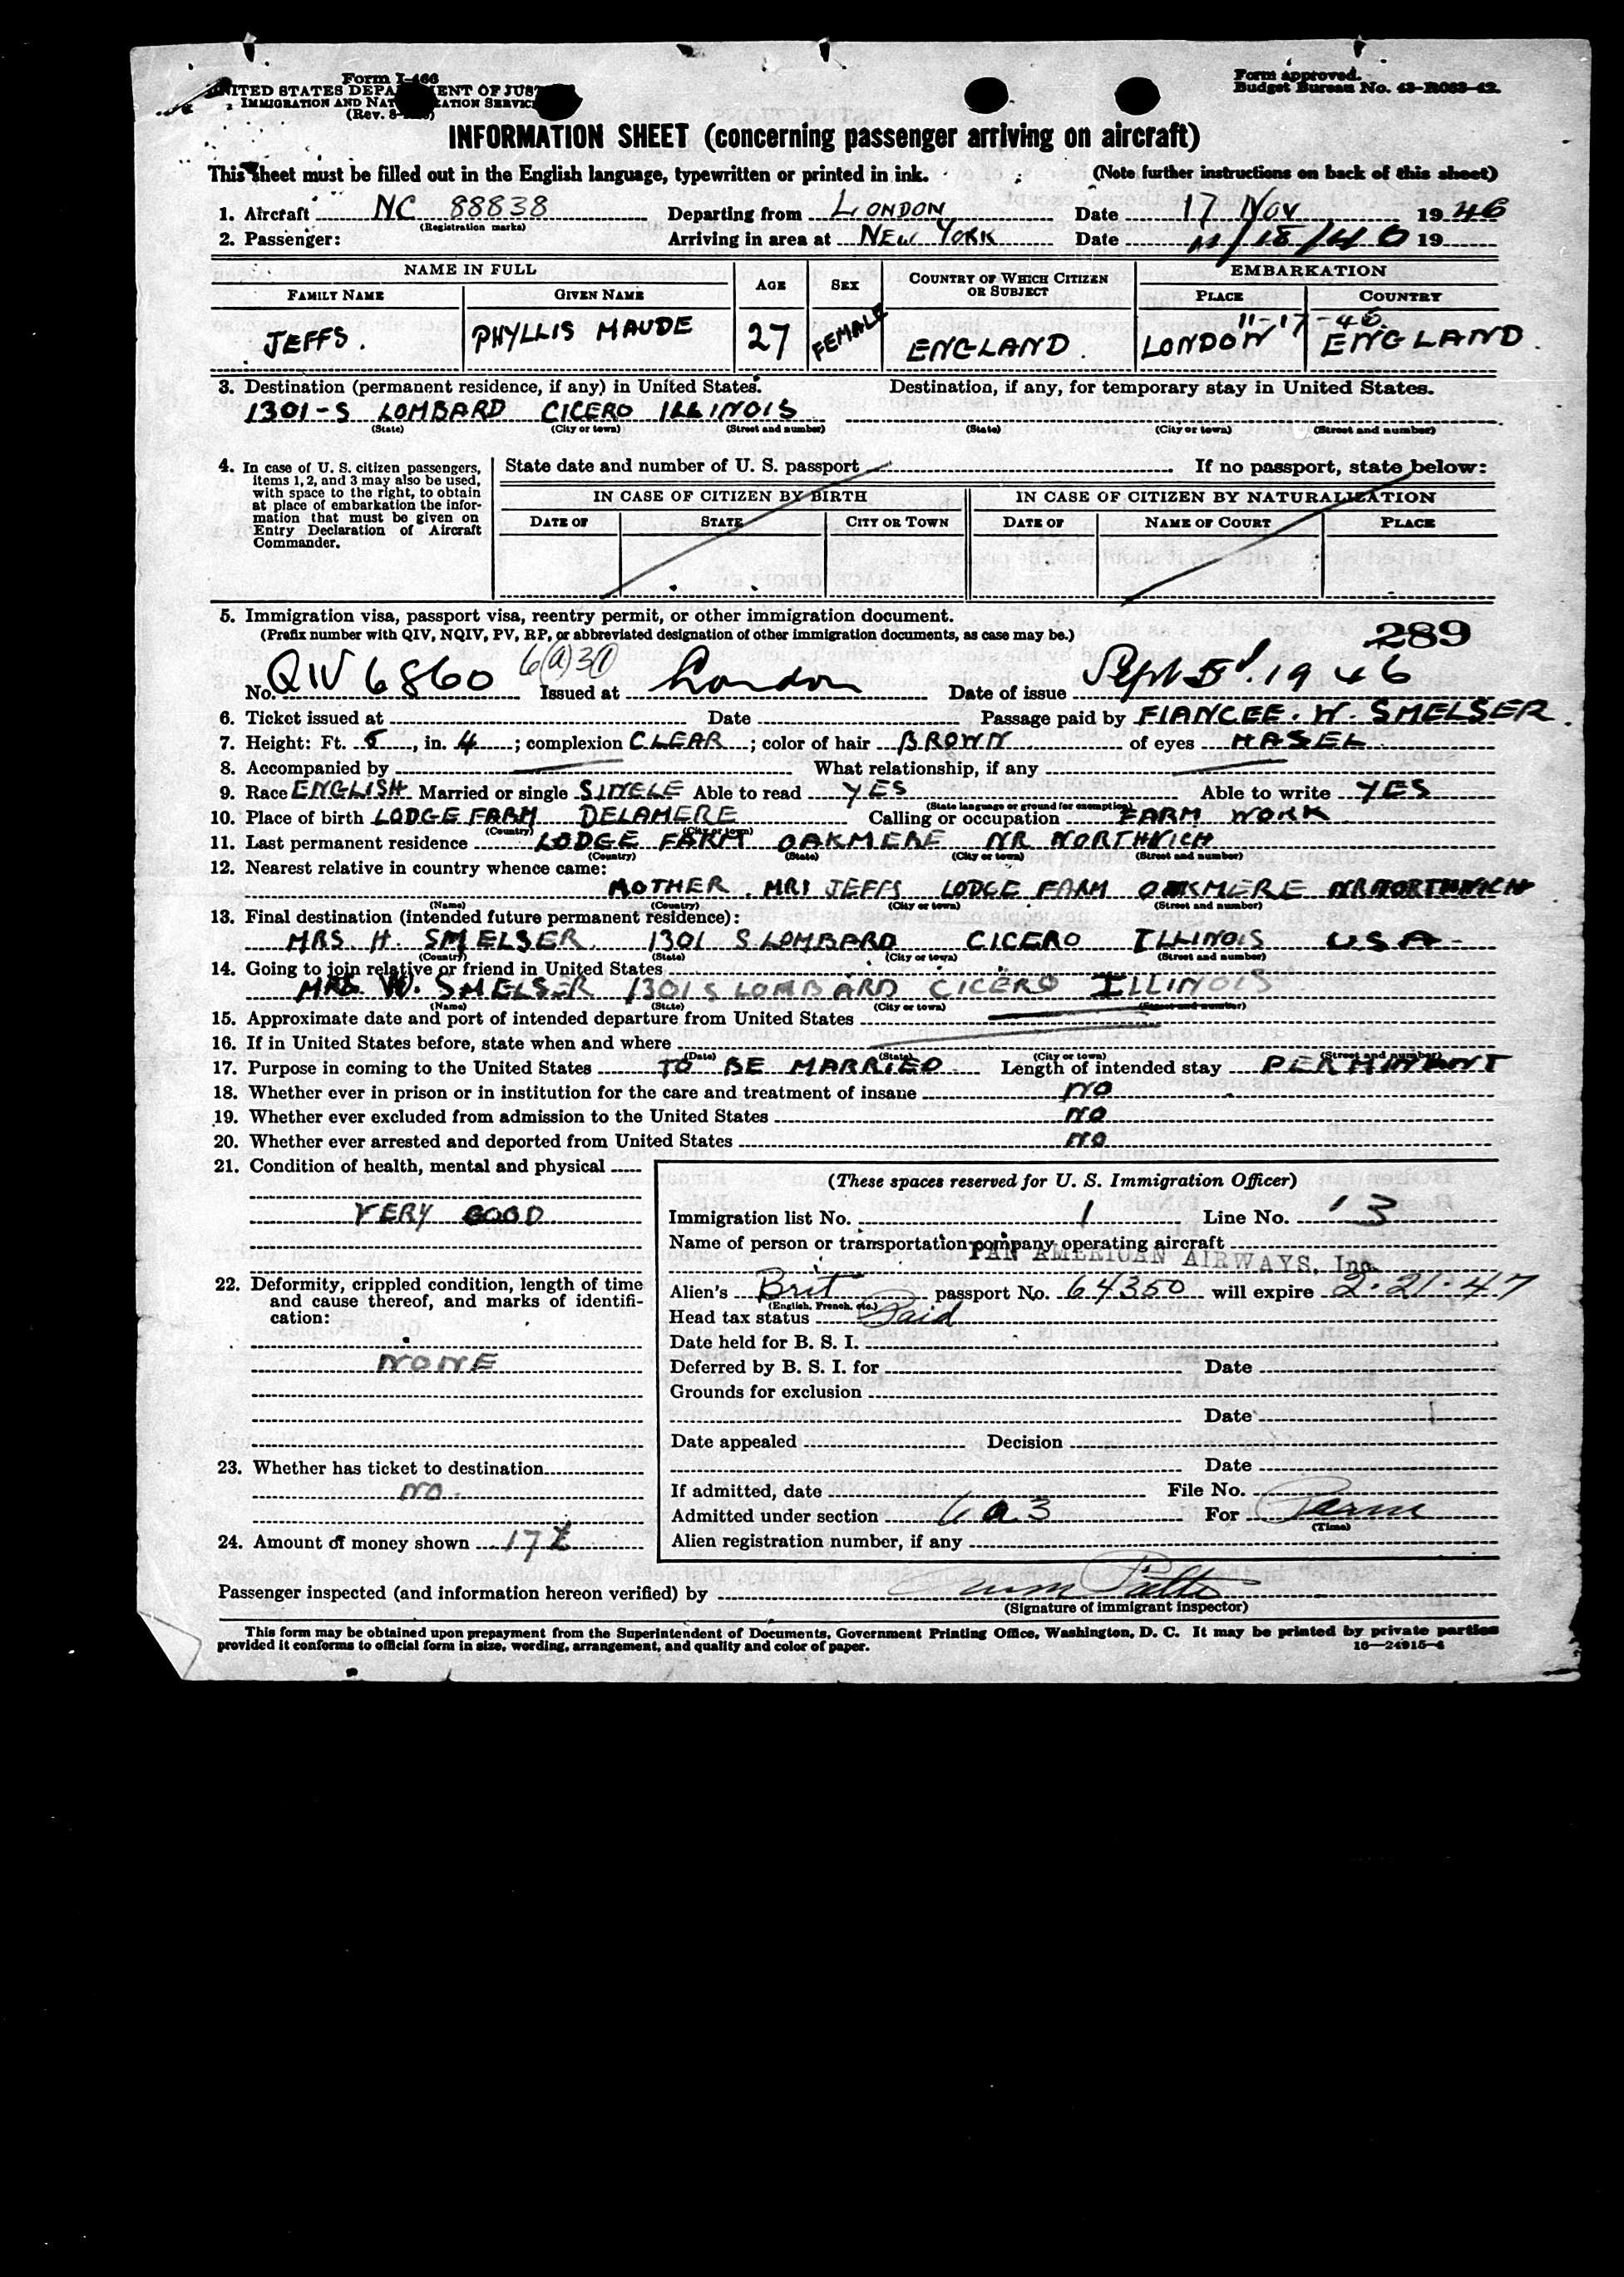 Form I-466
UNITED STATES DEPARTMENT OF JUSTICE
IMMIGRATION AND NATURALIZATION SERVICE
(Rev. 8-
Form approved.
Budget Bureau No. 43-R083-42.
INFORMATION SHEET (concerning passenger arriving on aircraft)
This sheet must be filled out in the English language, typewritten or printed in ink. (Note further instructions on back of this sheet)
1. Aircraft NC 88838 Departing from LONDON Date 17 Nov 1946
(Registration marks)
2. Passenger: Arriving in area at NEW YORK Date 11/18/46 19
NAME IN FULL AGE SEX COUNTRY OF WHICH CITIZEN OR SUBJECT EMBARKATION
FAMILY NAME GIVEN NAME PLACE COUNTRY
11-17-46
JEFFS. PHYLLIS MAUDE 27 FEMALE ENGLAND. LONDON ENGLAND.
3. Destination (permanent residence, if any) in United States. Destination, if any, for temporary stay in United States.
1301-S LOMBARD CICERO ILLINOIS
(State) (City or town) (Street and number) (State) (City or town) (Street and number)
4. In case of U. S. citizen passengers, items 1, 2, and 3 may also be used, with space to the right, to obtain at place of embarkation the information that must be given on Entry Declaration of Aircraft Commander.
State date and number of U. S. passport If no passport, state below:
IN CASE OF CITIZEN BY BIRTH IN CASE OF CITIZEN BY NATURALIZATION
DATE OF STATE CITY OR TOWN DATE OF NAME OF COURT PLACE
5. Immigration visa, passport visa, reentry permit, or other immigration document.
(Prefix number with QIV, NQIV, PV, RP, or abbreviated designation of other immigration documents, as case may be.) 289
No. QIV 6860 6(a)3 Issued at London Date of issue Sept 1946
6. Ticket issued at Date Passage paid by FIANCEE. W. SMELSER.
7. Height: Ft. 5, in. 4; complexion CLEAR; color of hair BROWN of eyes HASEL
8. Accompanied by What relationship, if any
9. Race ENGLISH Married or single SINGLE Able to read YES Able to write YES
(State language or ground for exemption)
10. Place of birth LODGE FARM DELAMERE Calling or occupation FARM WORK
(Country) (City or town)
11. Last permanent residence LODGE FARM OAKMERE NR NORTHWICH
(Country) (State) (City or town) (Street and number)
12. Nearest relative in country whence came:
MOTHER. MRS JEFFS LODGE FARM OAKMERE NR NORTHWICH
(Name) (Country) (City or town) (Street and number)
13. Final destination (intended future permanent residence):
MRS. H. SMELSER. 1301 S. LOMBARD CICERO ILLINOIS USA
(Country) (State) (City or town) (Street and number)
14. Going to join relative or friend in United States
MRS. W. SMELSER 1301 S LOMBARD CICERO ILLINOIS
(Name) (State) (City or town) (Street and number)
15. Approximate date and port of intended departure from United States
16. If in United States before, state when and where
(Date) (State) (City or town) (Street and number)
17. Purpose in coming to the United States TO BE MARRIED Length of intended stay PERMINANT
18. Whether ever in prison or in institution for the care and treatment of insane NO
19. Whether ever excluded from admission to the United States NO
20. Whether ever arrested and deported from United States NO
21. Condition of health, mental and physical
VERY GOOD
22. Deformity, crippled condition, length of time and cause thereof, and marks of identification:
NONE
23. Whether has ticket to destination
NO.
24. Amount of money shown 17£
(These spaces reserved for U. S. Immigration Officer)
Immigration list No. 1 Line No. 3
Name of person or transportation company operating aircraft
PAN AMERICAN AIRWAYS, Inc.
Alien's Brit passport No. 64350 will expire 2-21-47
(English, French, etc.)
Head tax status Paid
Date held for B. S. I.
Deferred by B. S. I. for Date
Grounds for exclusion
Date
Date appealed Decision
Date
If admitted, date File No.
Admitted under section 6a3 For Perm
(Time)
Alien registration number, if any
Passenger inspected (and information hereon verified) by
(Signature of immigrant inspector)
This form may be obtained upon prepayment from the Superintendent of Documents, Government Printing Office, Washington, D. C. It may be printed by private parties
provided it conforms to official form in size, wording, arrangement, and quality and color of paper. 16—24915-4